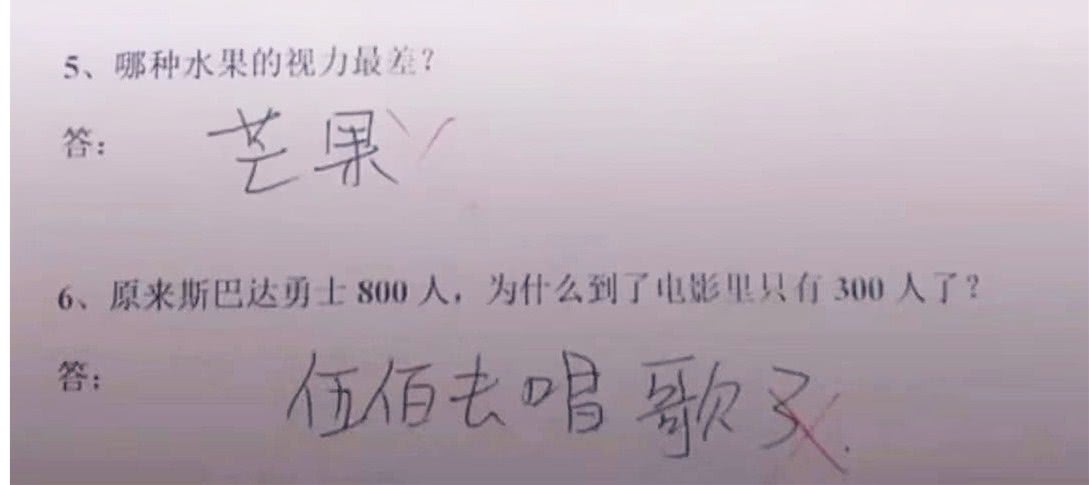 5、哪种水果的视力最差？
答： 芒果
6、原来斯巴达勇士 800 人，为什么到了电影里只有 300 人了？
答： 伍佰去唱歌了.